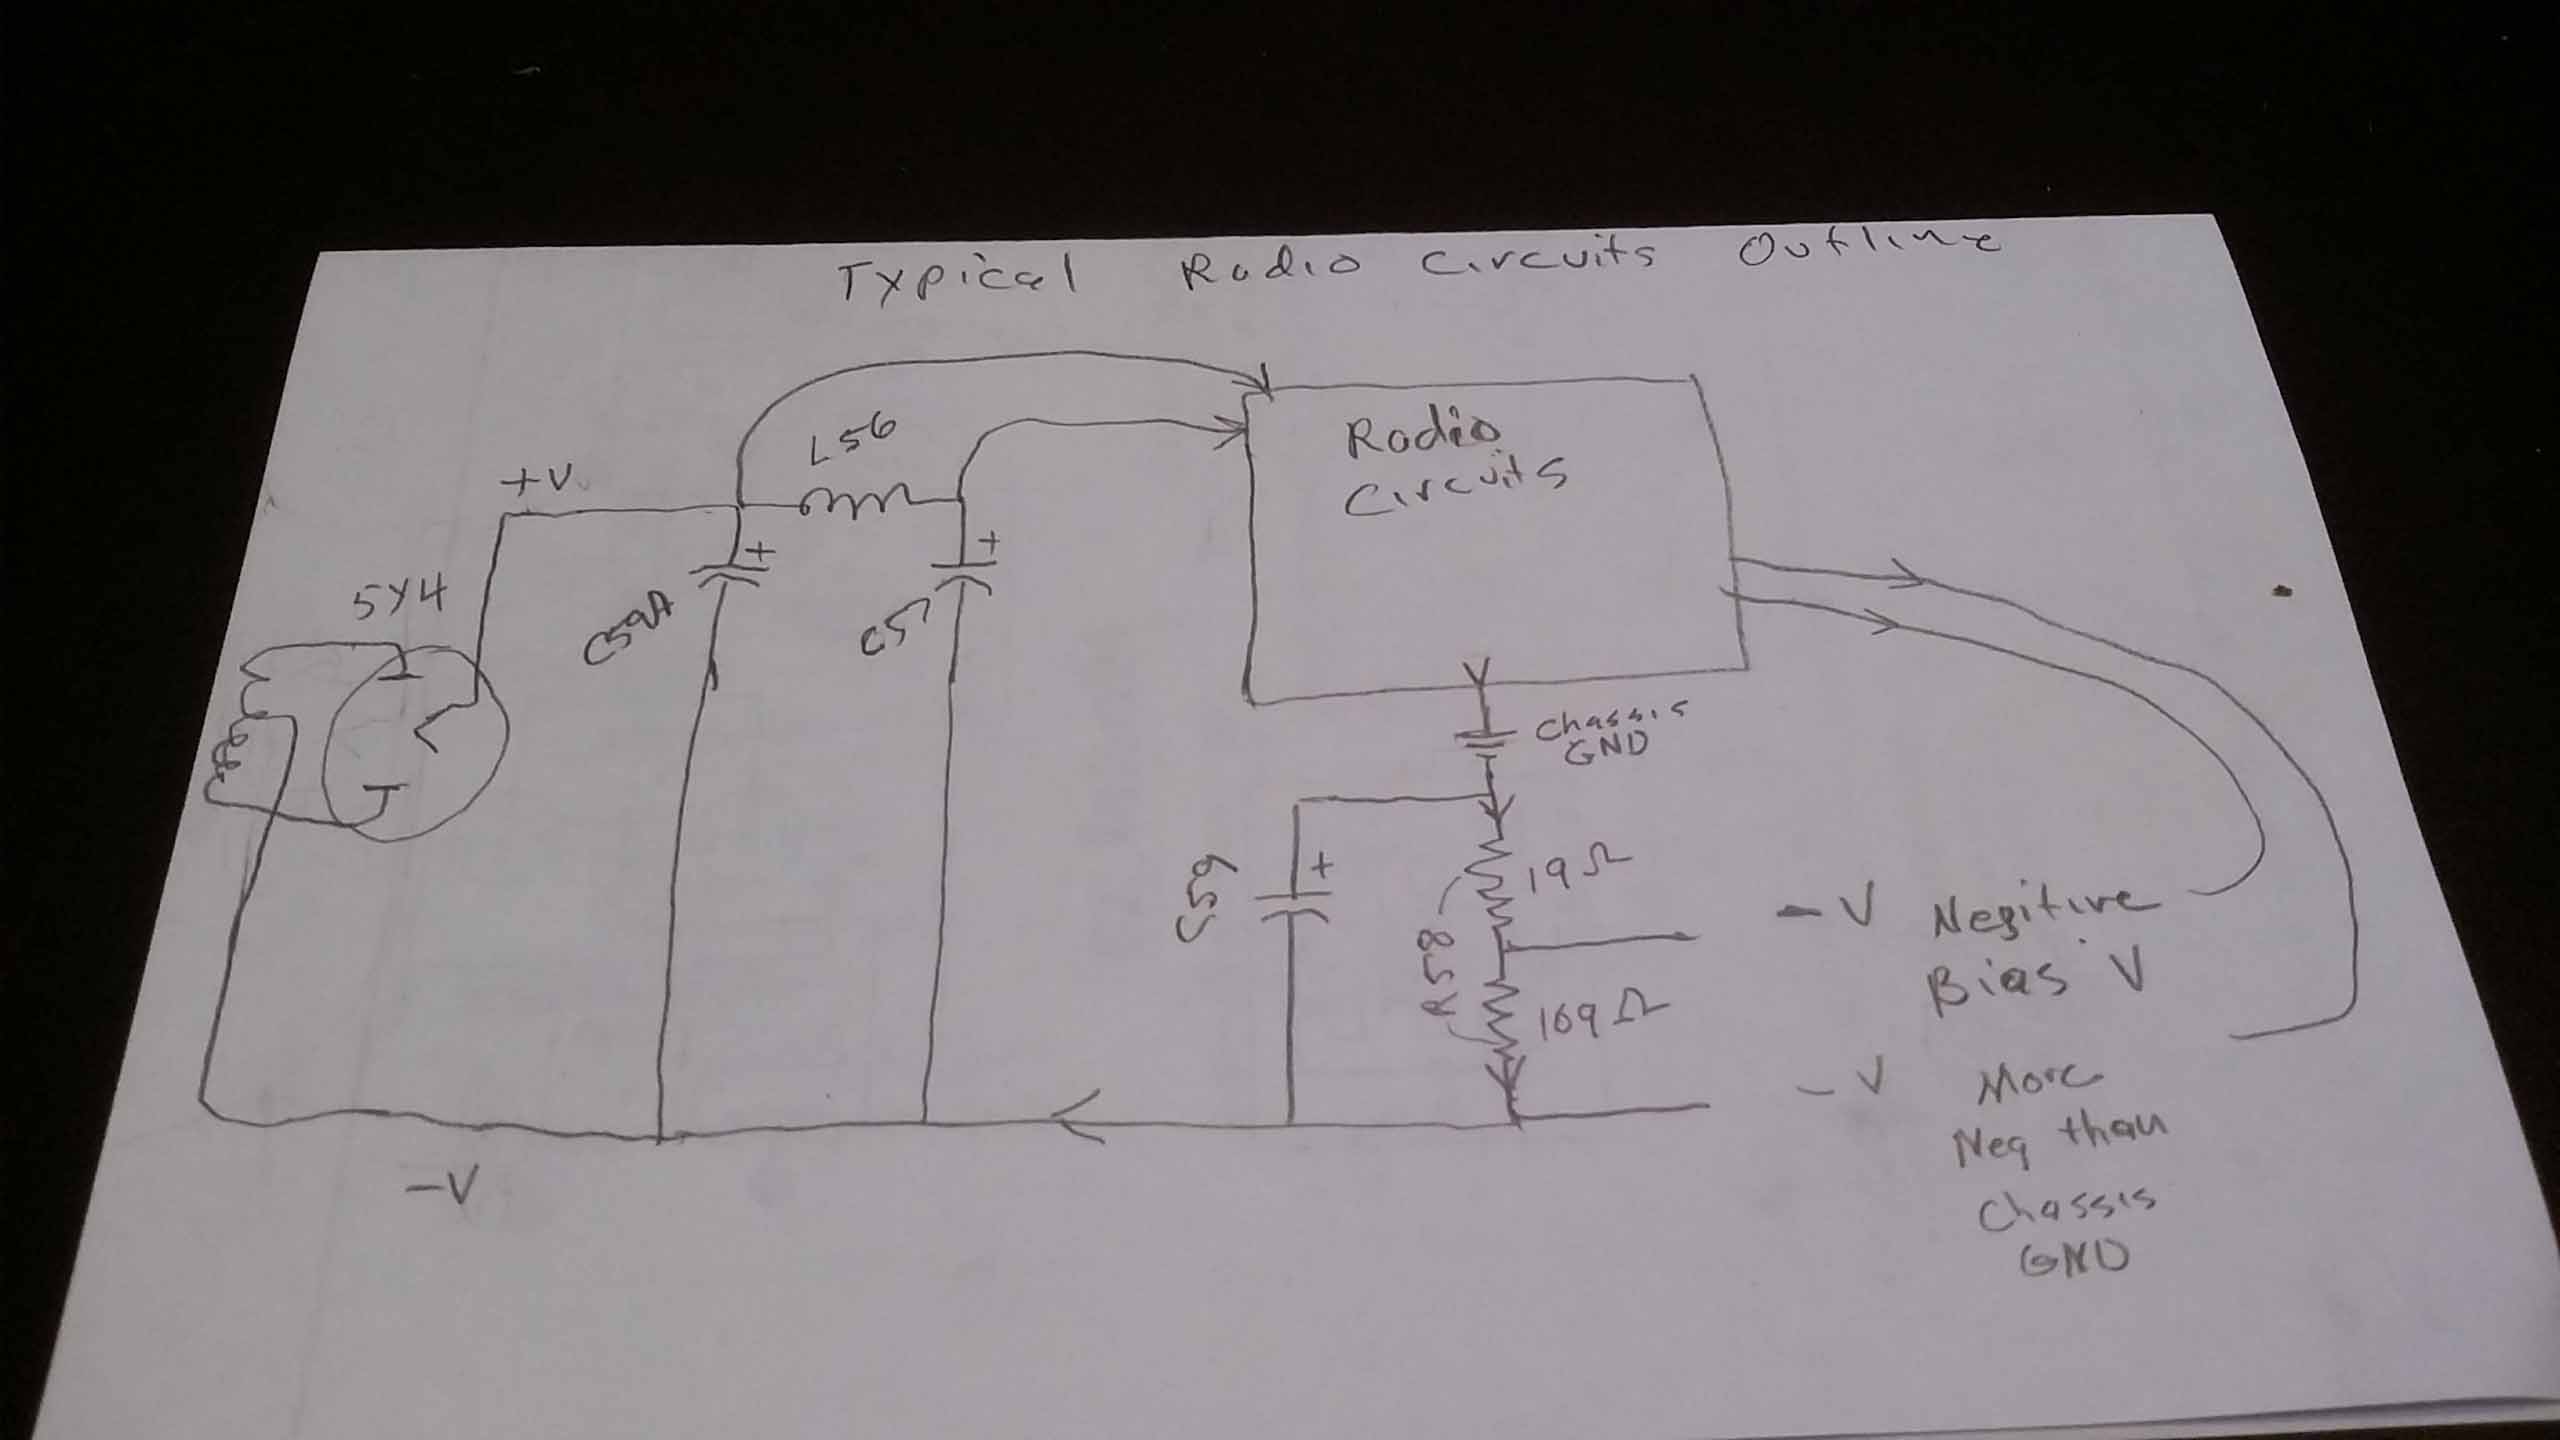 Typical Radio Circuits Outline
L56
Radio
Circuits
+V
+
+
5Y4
C59A
C57
Chassis
GND
+
C59
19Ω
R58
169Ω
-V Negitive
Bias V
-V More
Neg than
Chassis
GND
-V